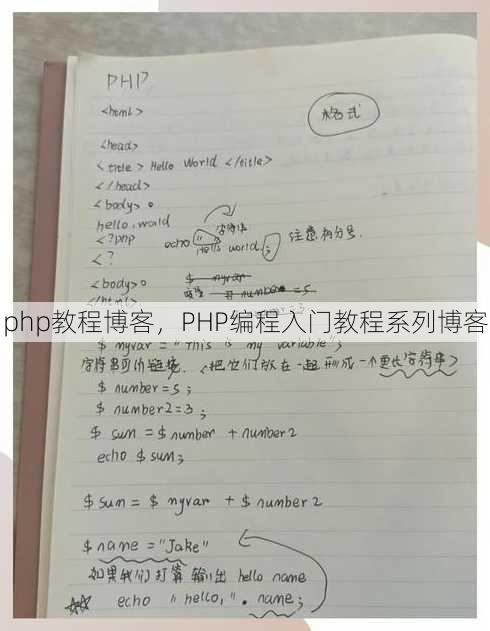 PHP
<html>
格式
<head>
<title> Hello World </title>
</head>
<body>
hello.world
字符串
<?php echo "Hello world"; 注意有分号.
<?
<body>
$ myvar
$ number = 5
php教程博客，PHP编程入门教程系列博客
$ myvar = "This is my variable";
字符串的链接. (把它们放在一起形成一个更长字符串)
$ number=5;
$ number2=3;
$ sum = $ number + number2
echo $ sum;
$ sum = $ myvar + $ number2
$ name = "Jake"
如果我们打算输出 hello name
echo "hello,". name;